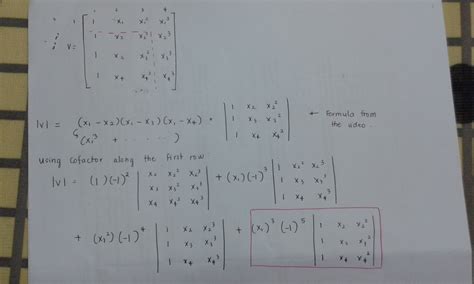 1 2 3 4
V = [ 1 x₁ x₁² x₁³
1 x₂ x₂² x₂³
1 x₃ x₃² x₃³
1 x₄ x₄² x₄³ ]
|V| = (x₁ - x₂)(x₁ - x₃)(x₁ - x₄) · | 1 x₂ x₂² ; 1 x₃ x₃² ; 1 x₄ x₄² | ← Formula from the video.
(x₁³ + ......)
Using cofactor along the first row
|V| = (1)(-1)² | x₂ x₂² x₂³ ; x₃ x₃² x₃³ ; x₄ x₄² x₄³ | + (x₁)(-1)³ | 1 x₂² x₂³ ; 1 x₃² x₃³ ; 1 x₄² x₄³ |
+ (x₁²)(-1)⁴ | 1 x₂ x₂³ ; 1 x₃ x₃³ ; 1 x₄ x₄³ | + (x₁)³(-1)⁵ | 1 x₂ x₂² ; 1 x₃ x₃² ; 1 x₄ x₄² |